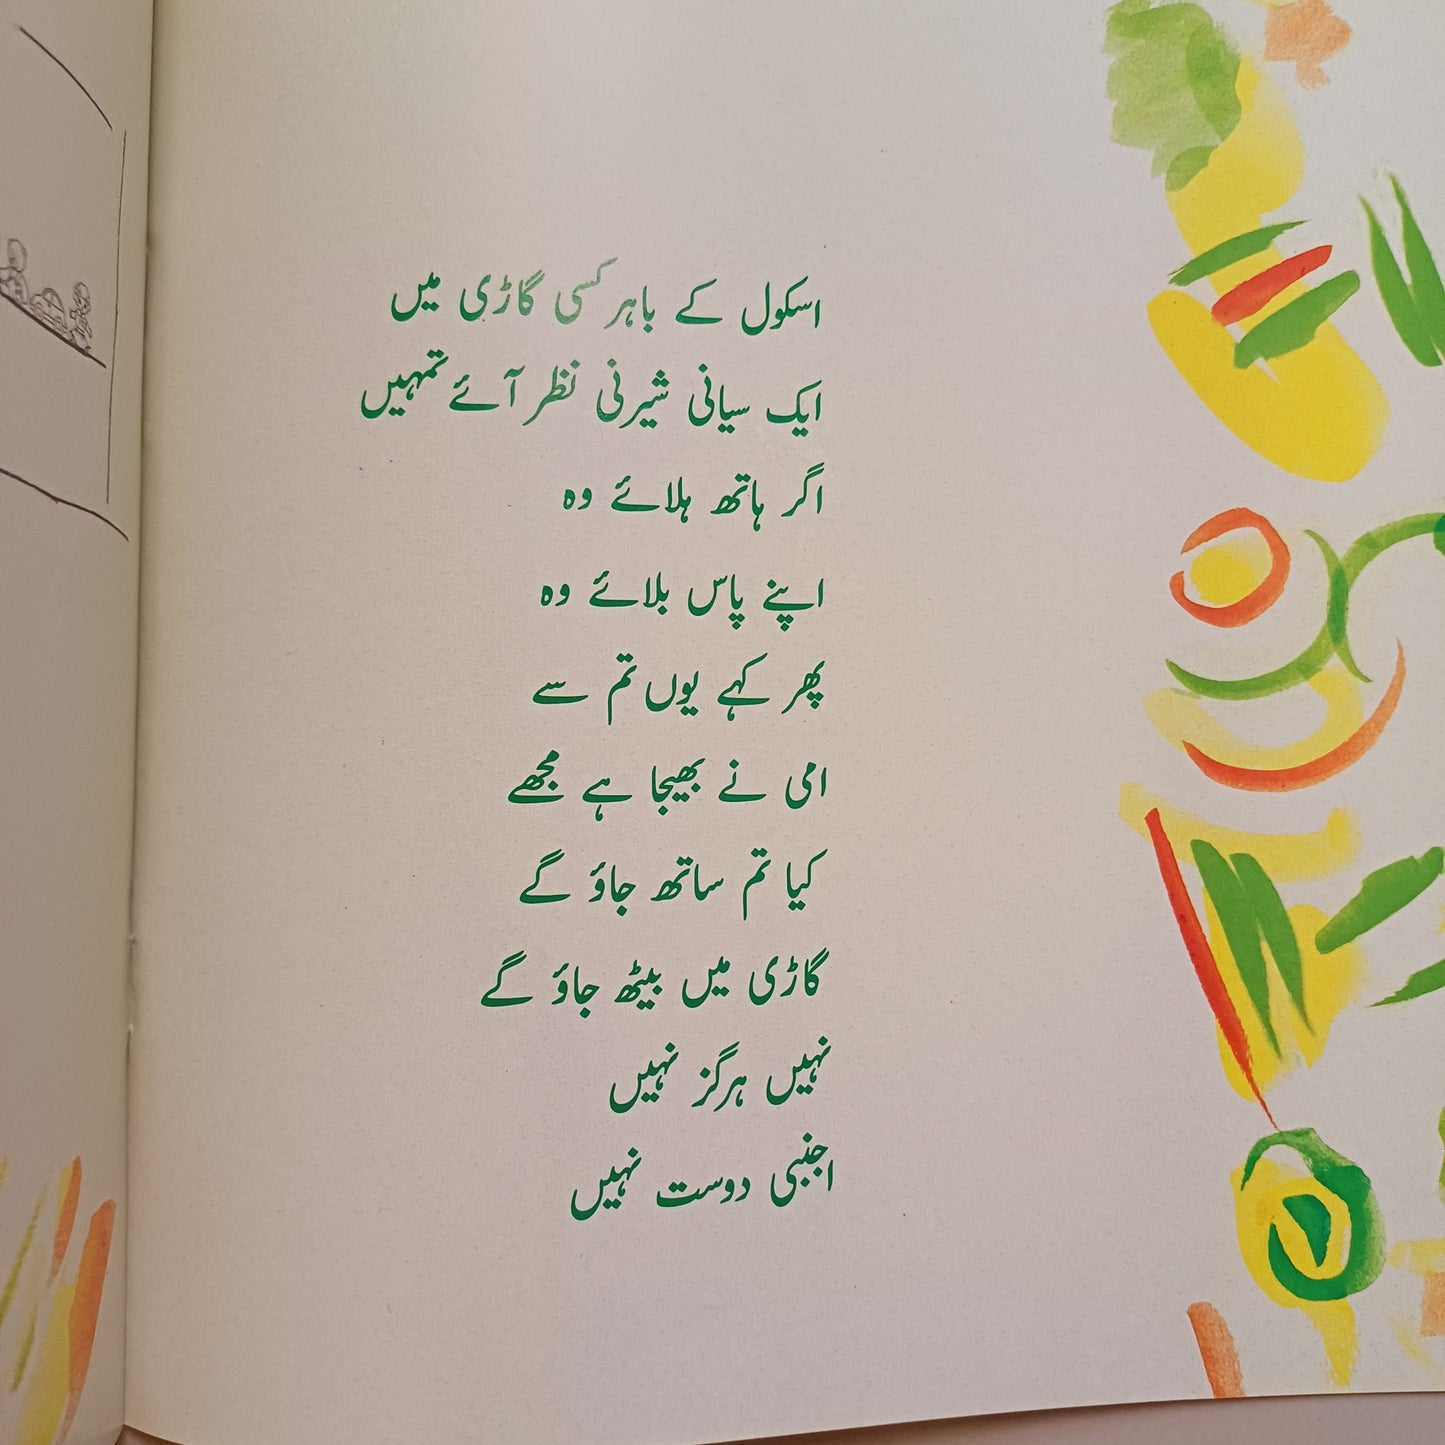 اسکول کے باہر کسی گاڑی میں
ایک سیانی شیرنی نظر آئے تمہیں
اگر ہاتھ ہلائے وہ
اپنے پاس بلائے وہ
پھر کہے یوں تم سے
امی نے بھیجا ہے مجھے
کیا تم ساتھ جاؤ گے
گاڑی میں بیٹھ جاؤ گے
نہیں ہرگز نہیں
اجنبی دوست نہیں